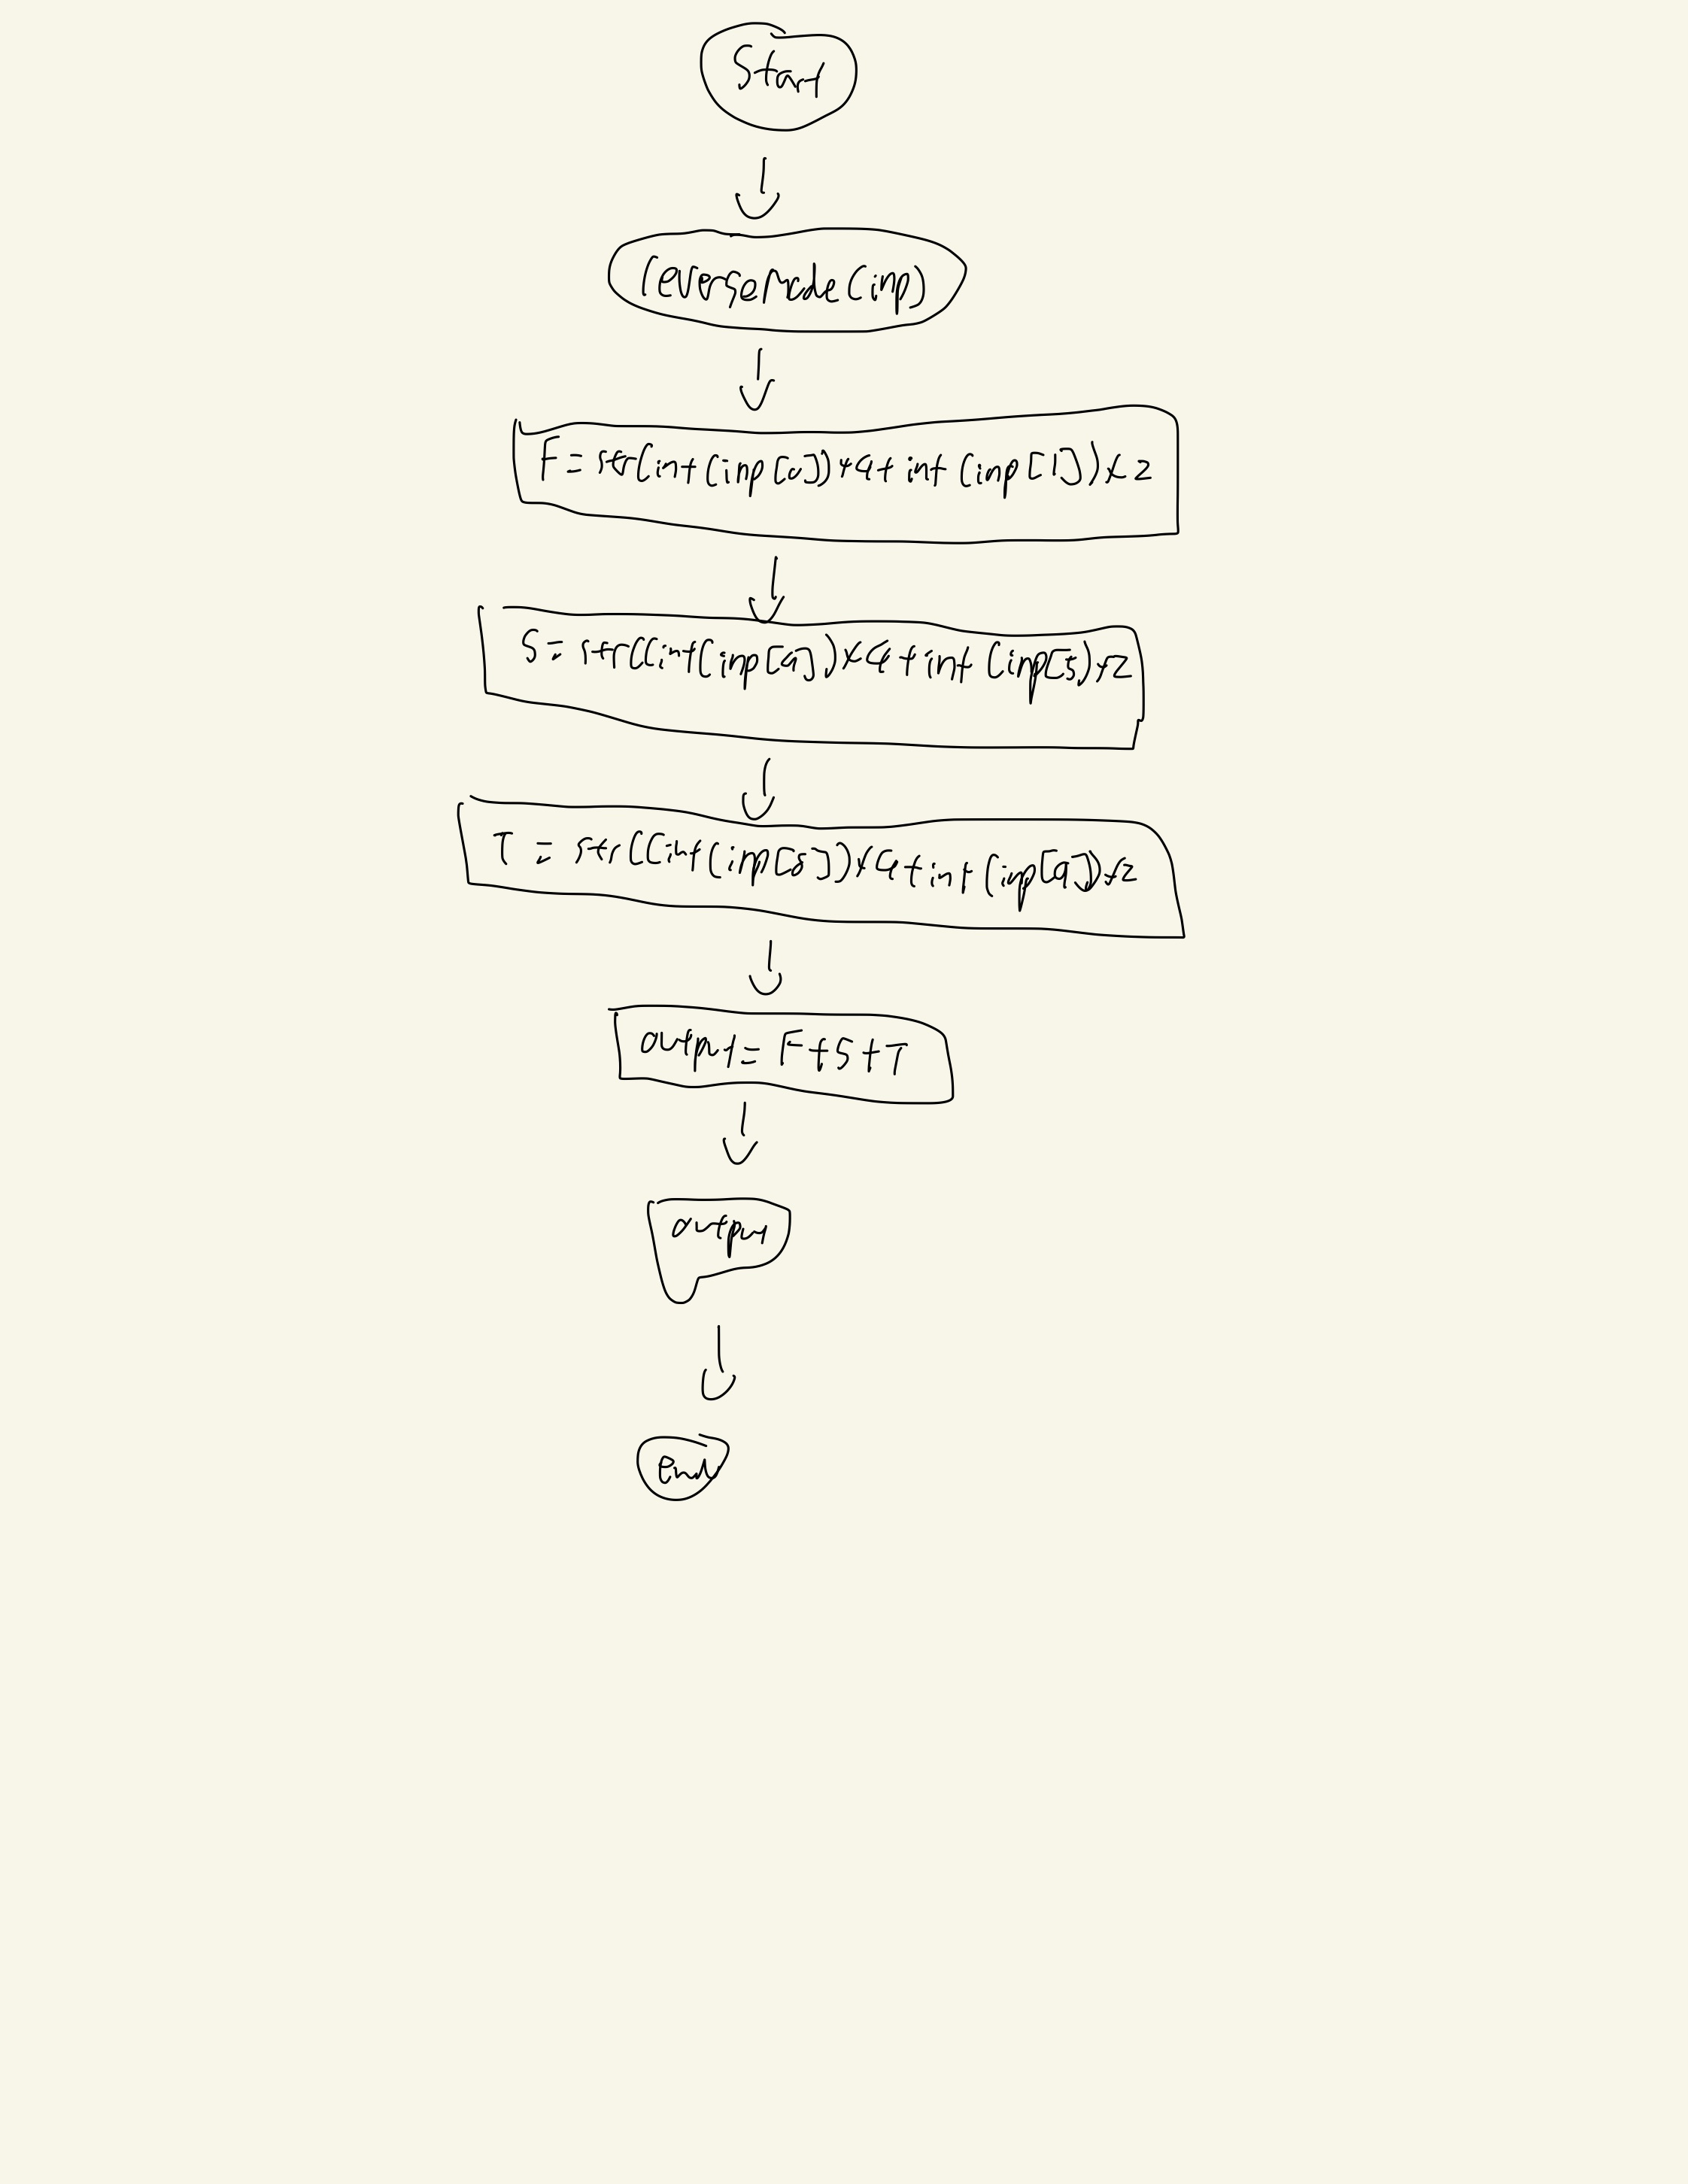 Start
reverseMode(inp)
F = str(int(inp[0])×4+int(inp[1])×2
S = str((int(inp[4])×4+int(inp[5)×2
T = str((int(inp[8]))×4+int(inp[9])×2
output = F+S+T
output
end